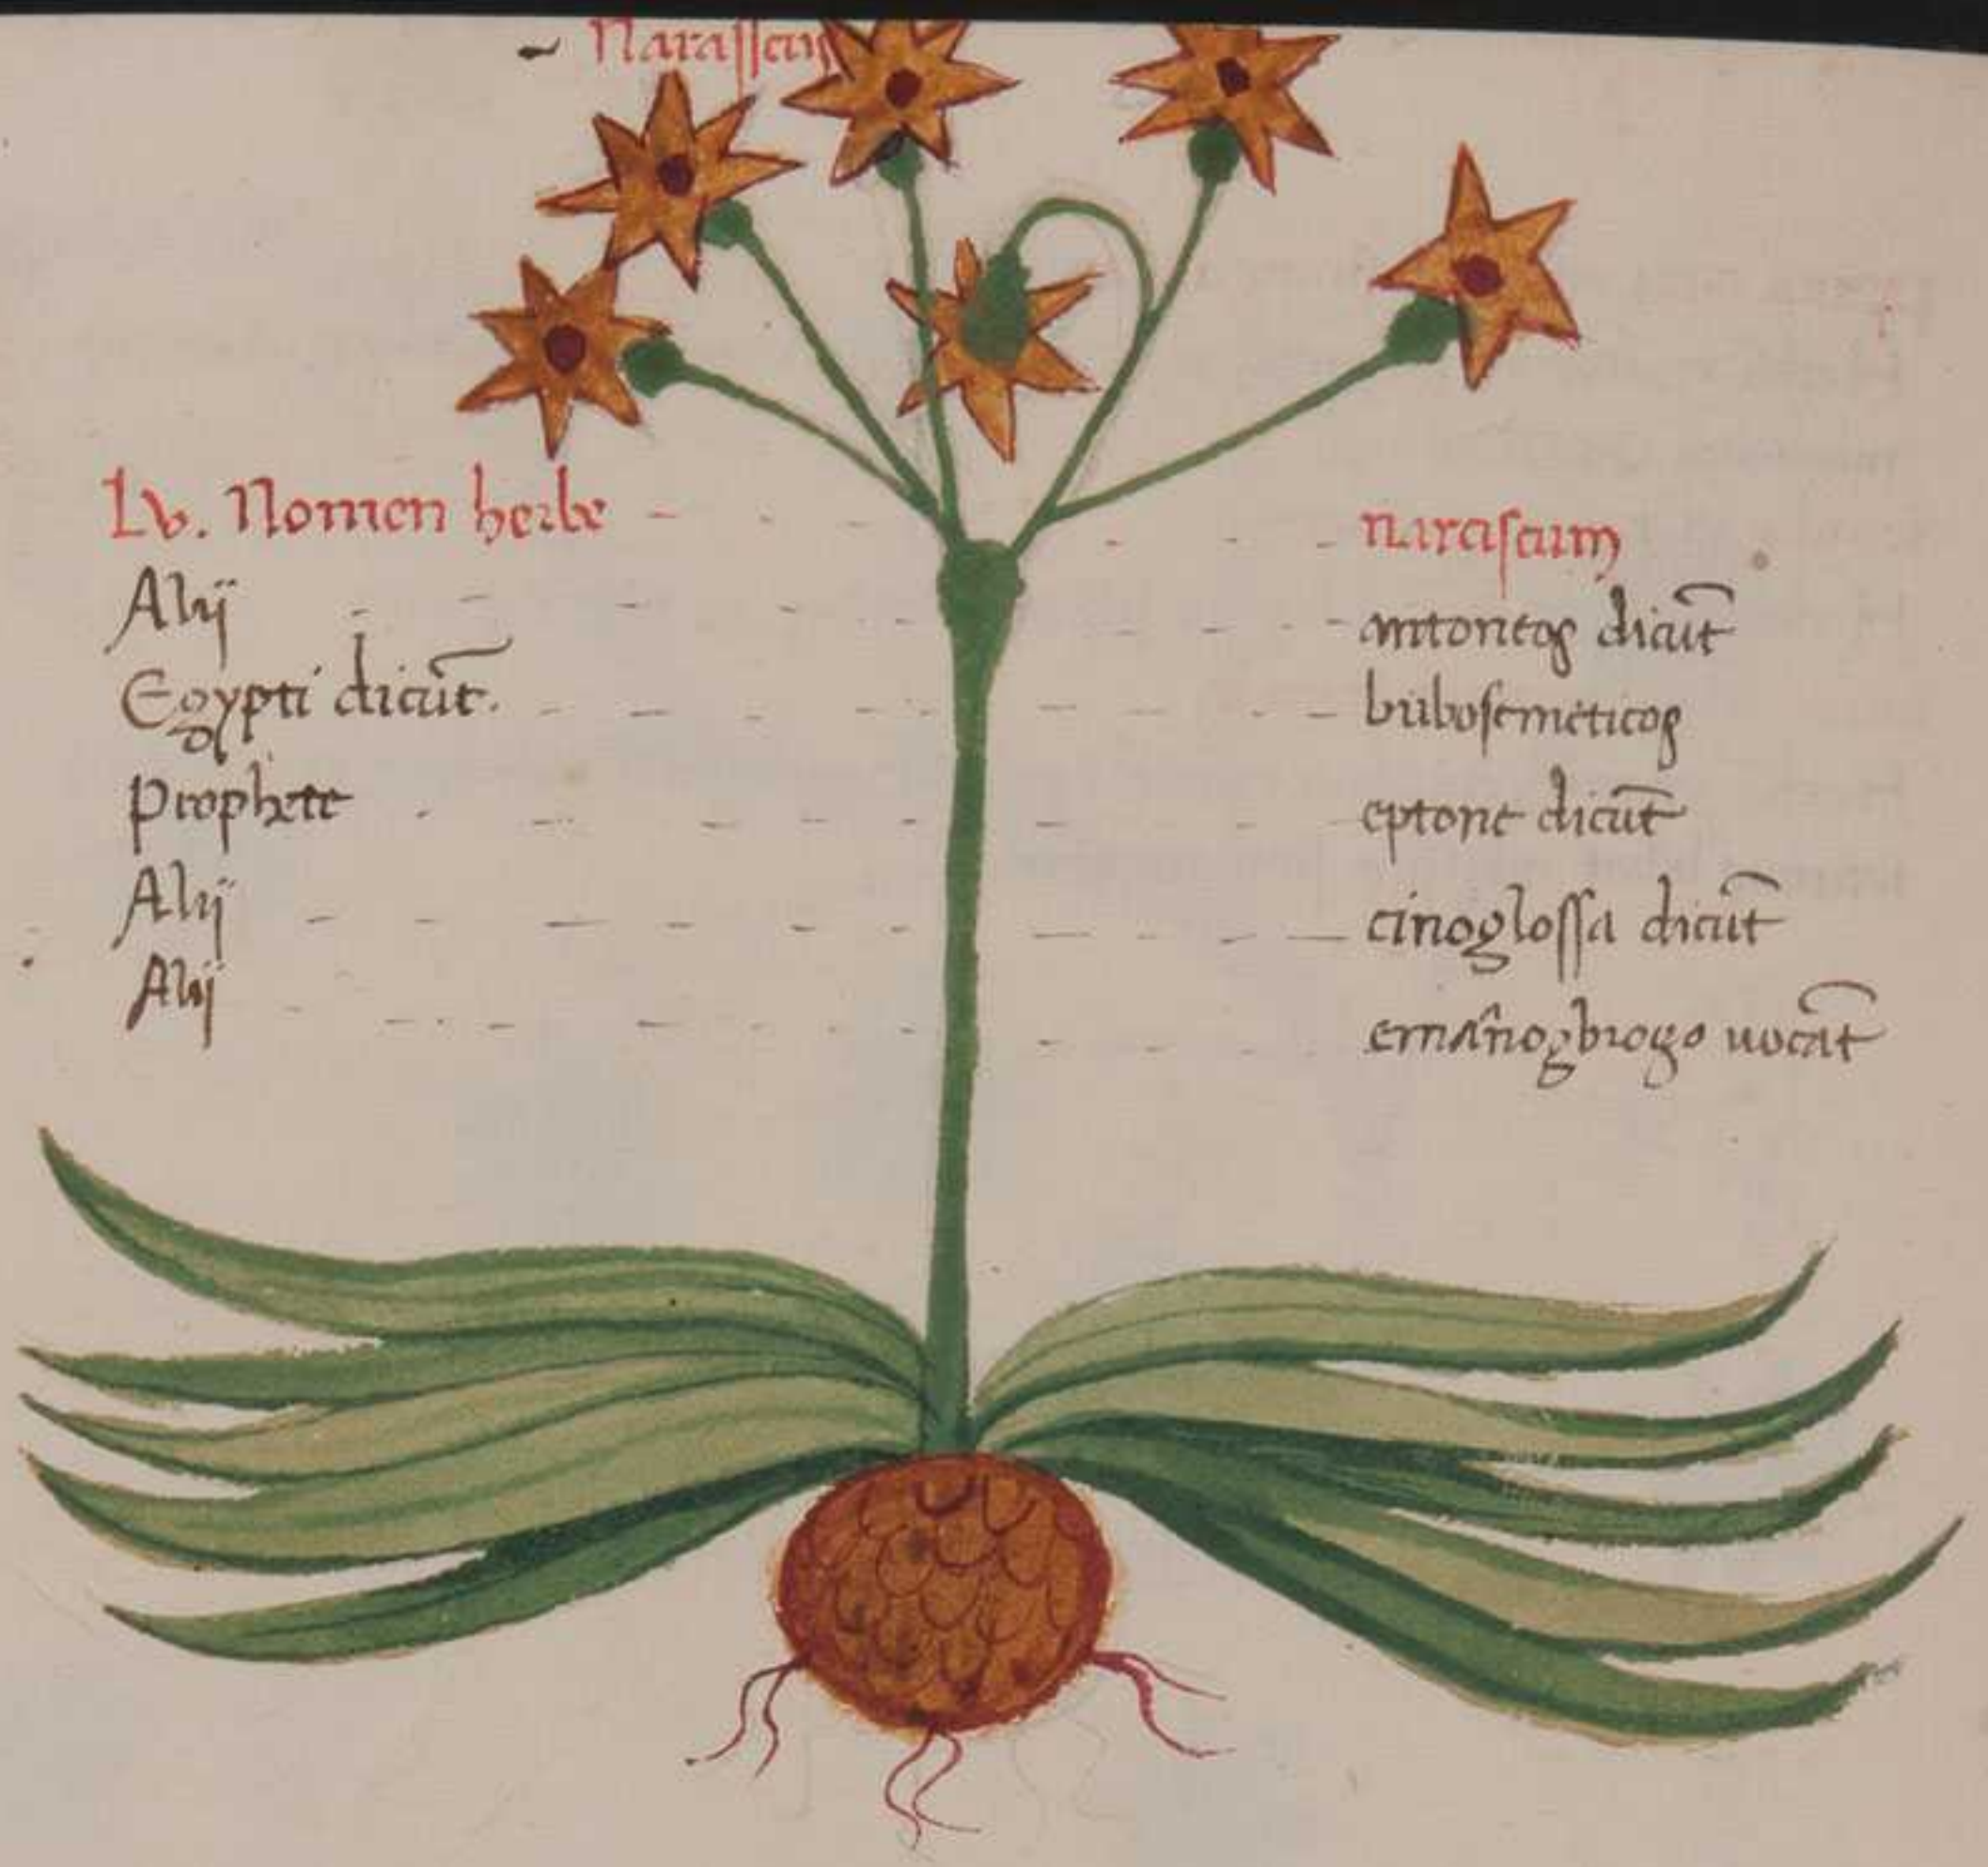 Narcissus
Lv. Nomen herbe narciscum
Alij antoneos dicūt
Egypti dicūt. bulbosemeticos
Prophete eptone dicūt
Alij cinoglossa dicūt
Alij uocāt